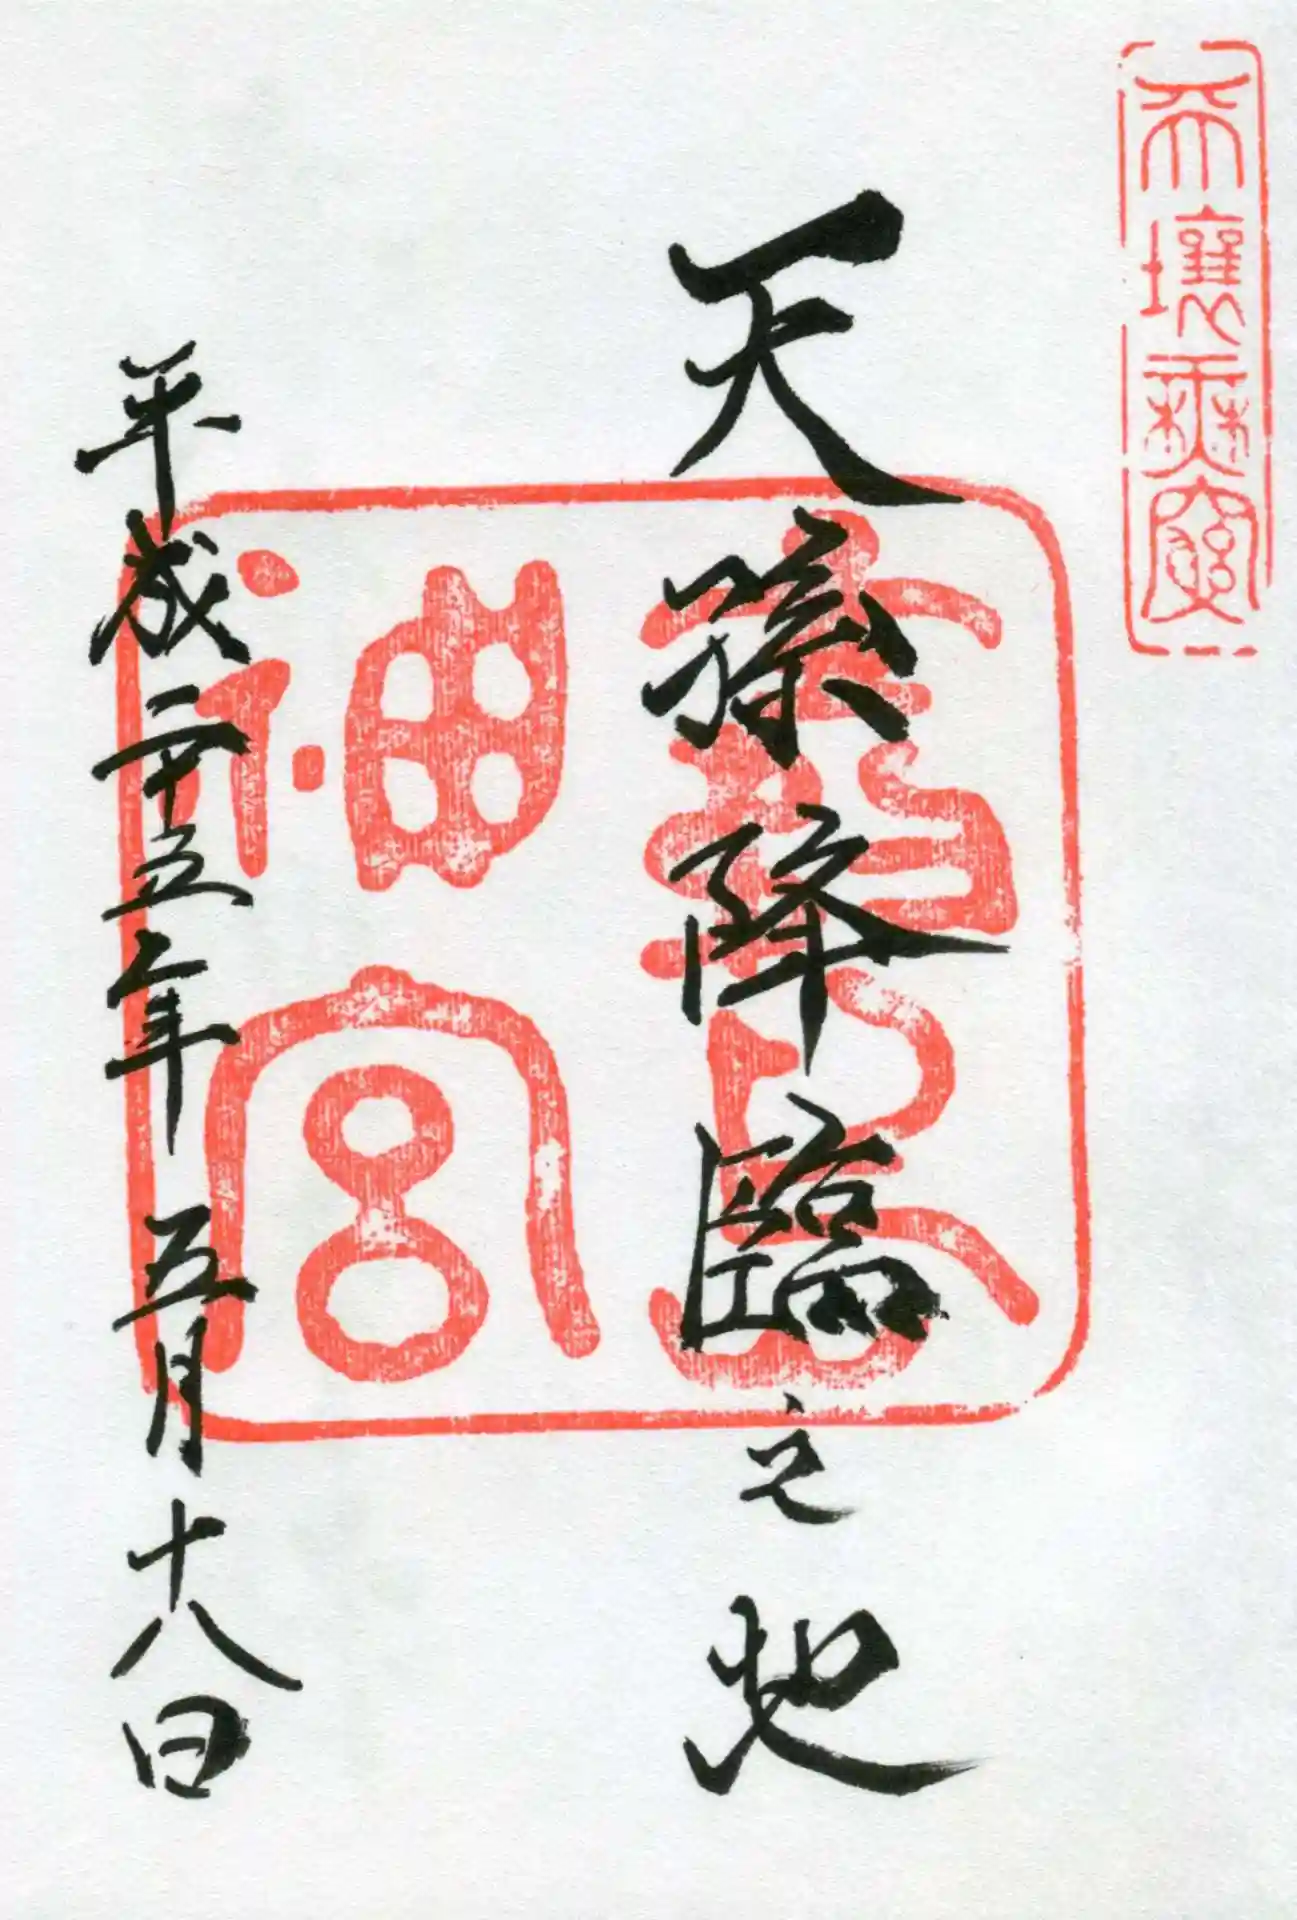 天壤無窮
天孫降臨之地
神宮
平成二十五年五月十八日